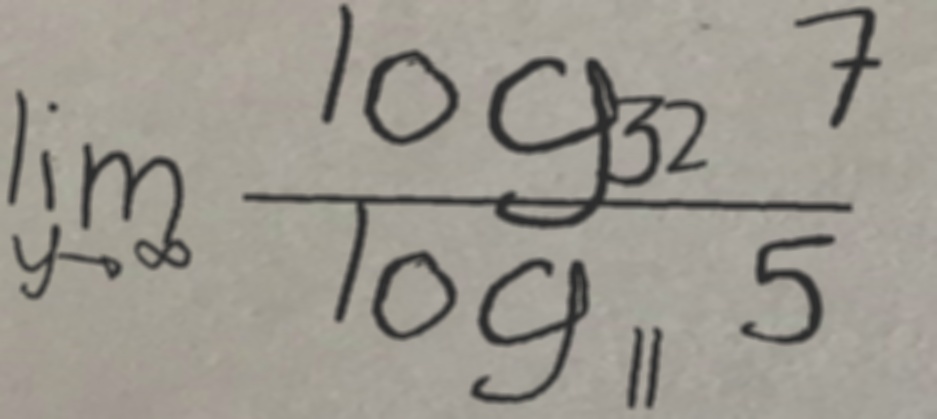 \lim_{y \to \infty} \frac{\log_{32} 7}{\log_{11} 5}